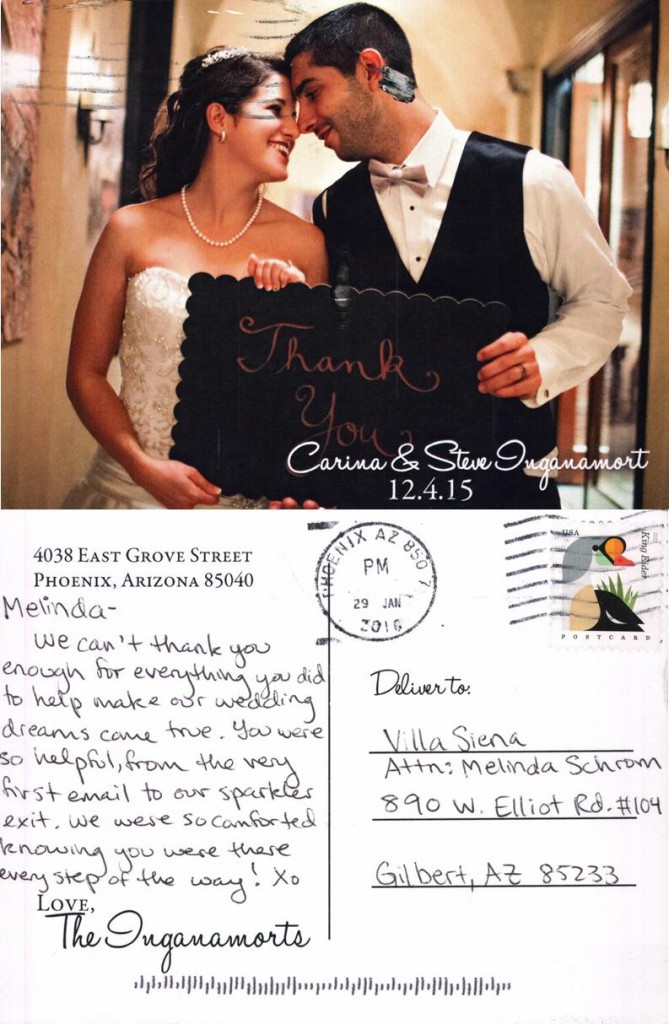 Thank
You
Carina & Steve Inganamort
12.4.15
4038 East Grove Street
Phoenix, Arizona 85040
Melinda-
We can't thank you
enough for everything you did
to help make our wedding
dreams come true. You were
so helpful, from the very
first email to our sparkler
exit. We were so comforted
knowing you were there
every step of the way! Xo
Love,
The Inganamorts
PHOENIX AZ 850
PM
29 JAN
2016
USA
King Eider
POSTCARD
Deliver to:
Villa Siena
Attn: Melinda Schrom
890 W. Elliot Rd. #104
Gilbert, AZ 85233